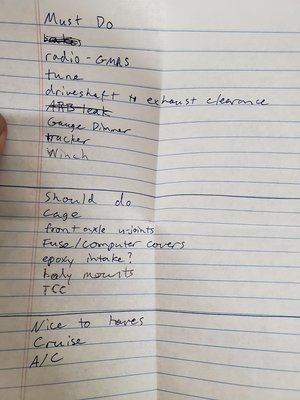 Must Do
brakes
radio - GMRS
tune
driveshaft to exhaust clearance
ARB leak
Gauge Dimmer
tracker
Winch
Should do
Cage
front axle u-joints
Fuse/computer covers
epoxy intake?
body mounts
TCC
Nice to haves
Cruise
A/C